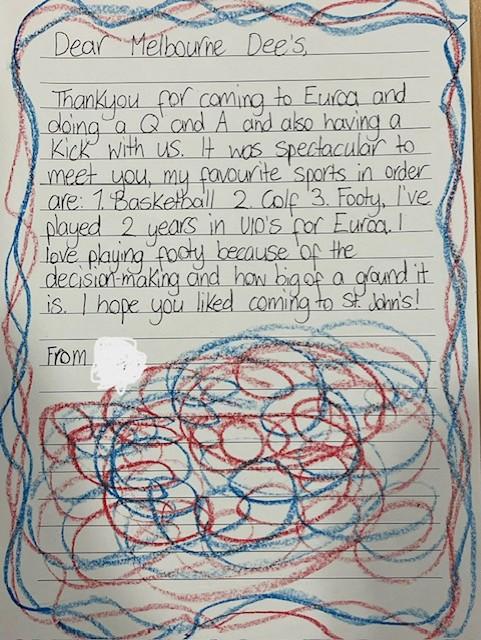 Dear Melbourne Dee's,
Thankyou for coming to Euroa and
doing a Q and A and also having a
Kick with us. It was spectacular to
meet you, my favourite sports in order
are: 1. Basketball 2. Golf 3. Footy, I've
played 2 years in U10's for Euroa. I
love playing footy because of the
decision-making and how big of a ground it
is. I hope you liked coming to St John's!
From